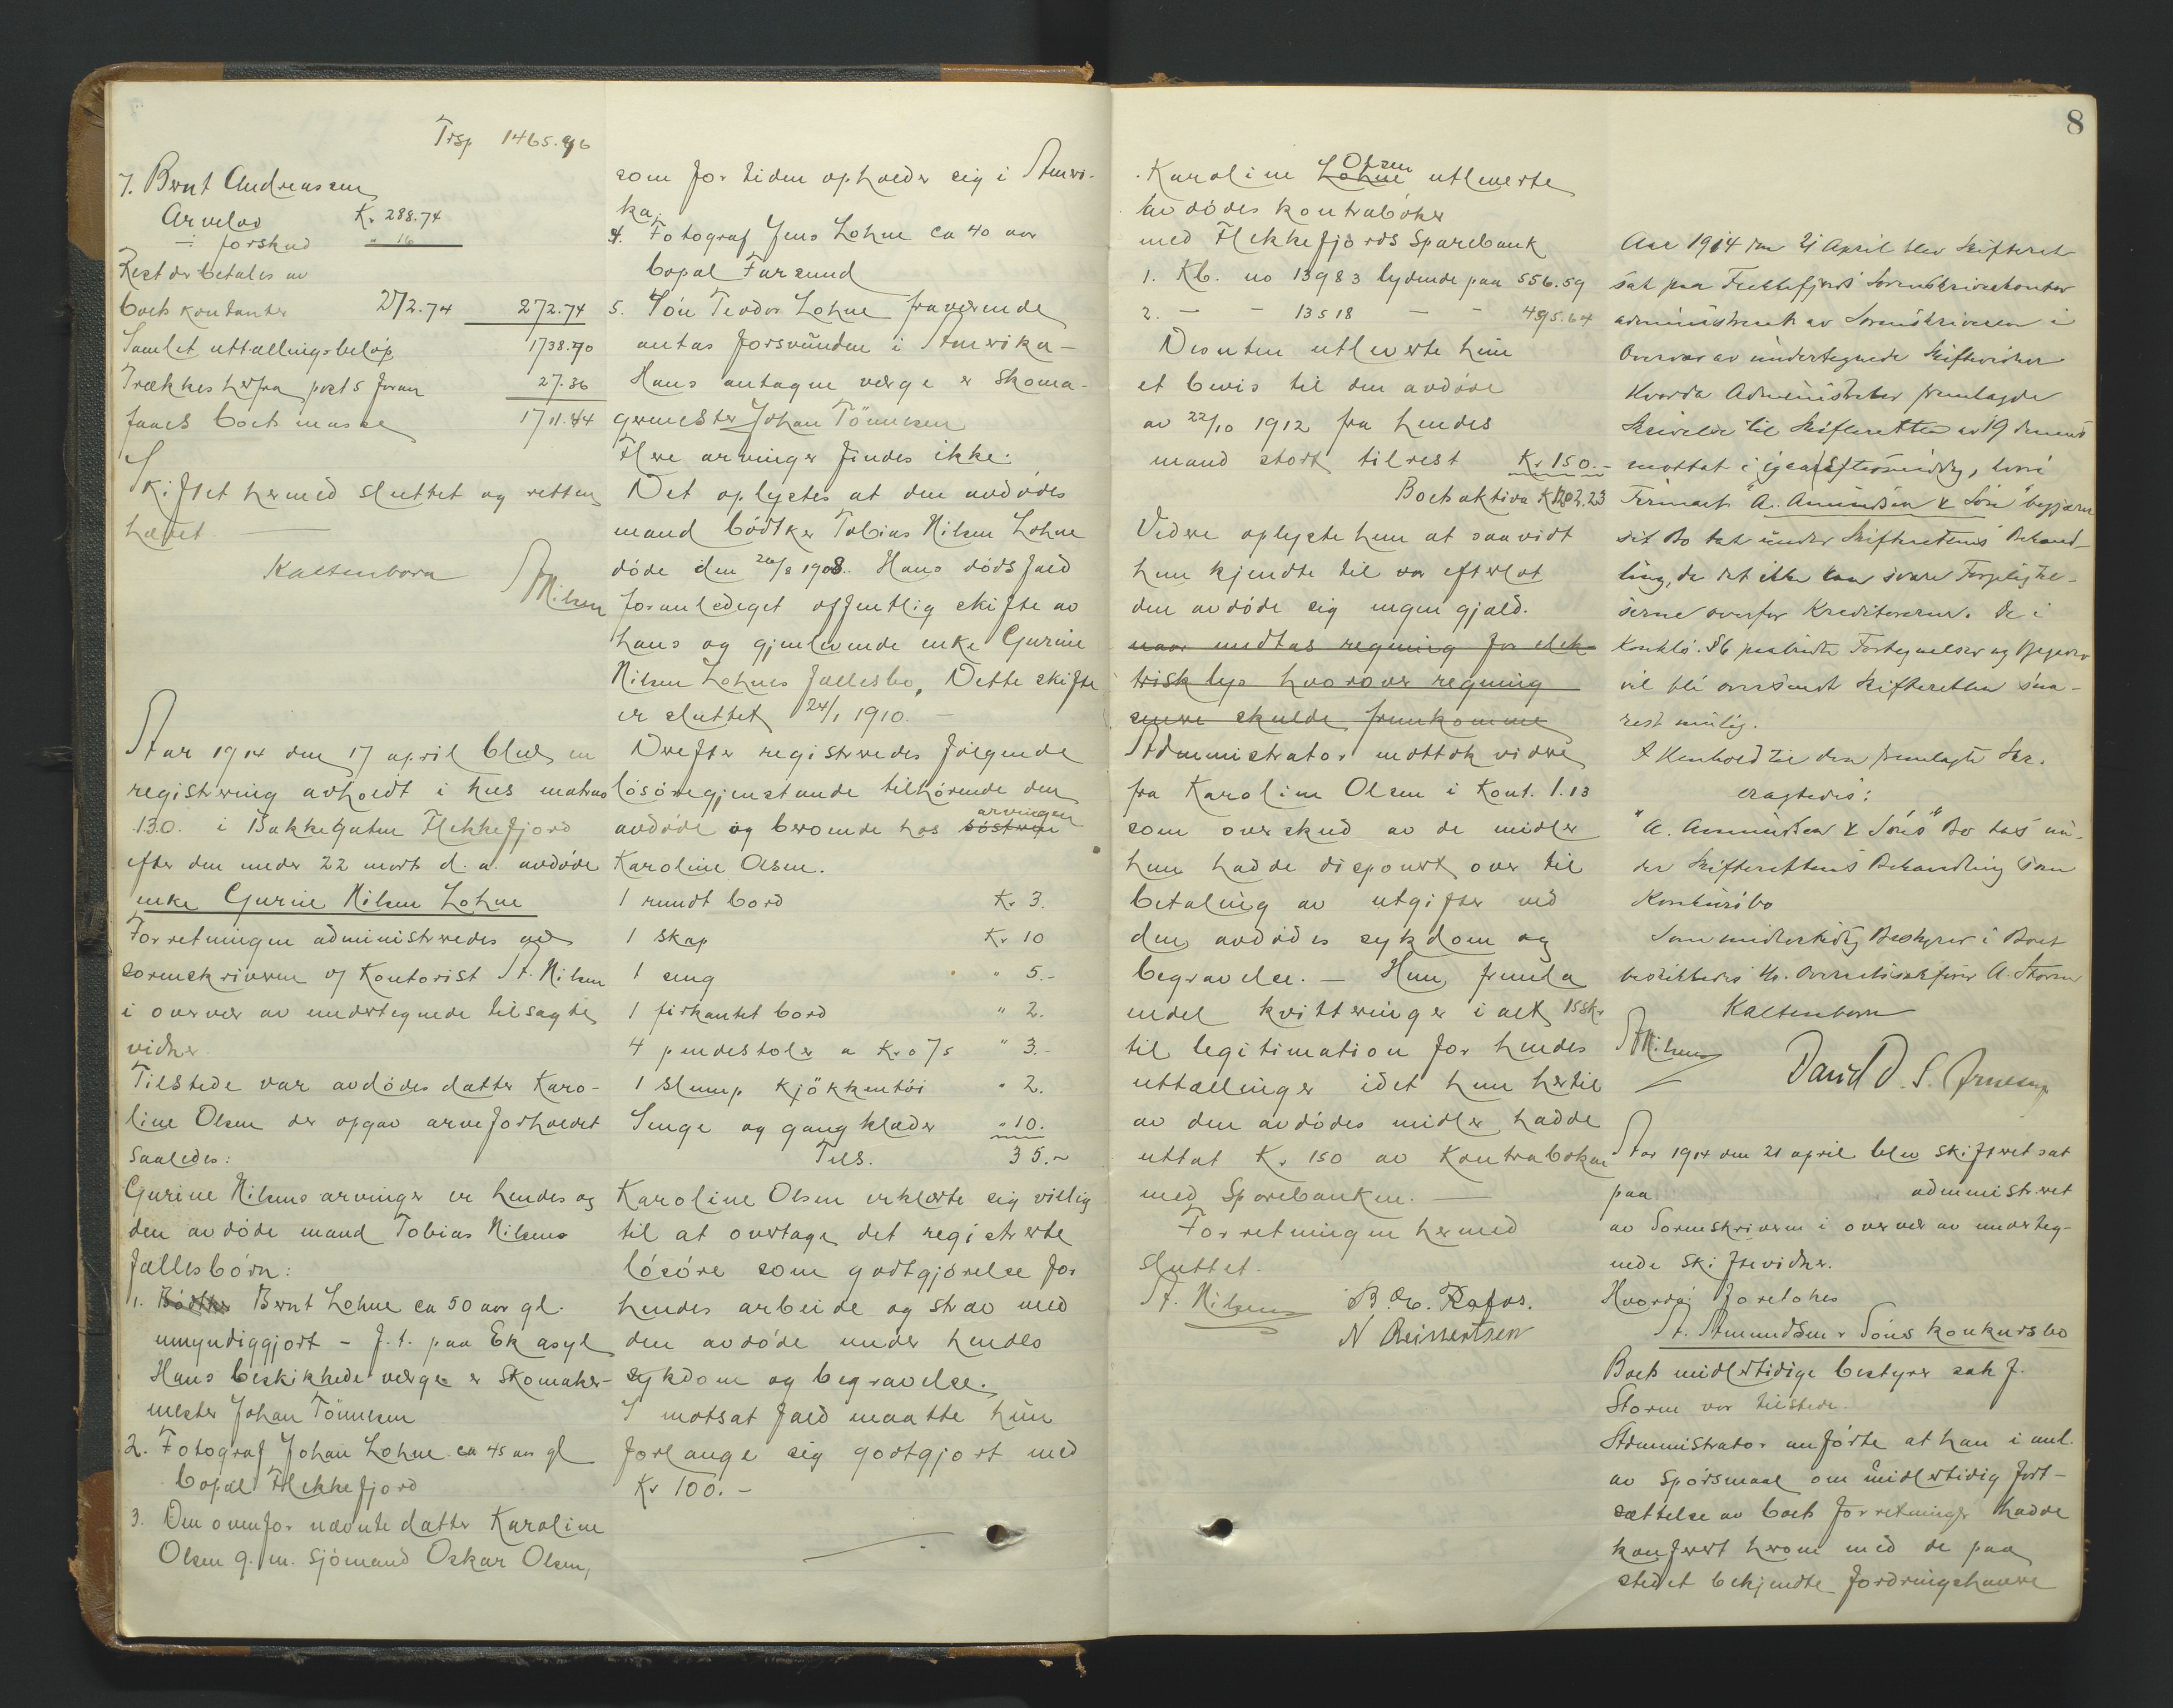 Trsp 1465.96
7. Bernt Andreassen
Arvelod Kr 288.74
÷ forskud " 16
Rest der betales av
boets kontanter 272.74 272.74
Samlet uttællingsbeløp 1738.70
Trækkes herfra post 5 foran 27.36
faaes boets masse 1711.44
Skiftet hermed sluttet og retten
hævet.
Kaltenborn
A Nilsen
Aar 1914 den 17 april blev en
registrering avholdt i hus matrno
130. i Bakkegaten Flekkefjord
efter den under 22 mars d. a. avdøde
enke Gurine Nilsen Lohne
Forretningen administreredes av
sorenskriveren v/ Kontorist A. Nilsen
i overvær av undertegnede tilsagte
vidner
Tilstede var avdødes datter Karo-
line Olsen der opgav arveforholdet
saaledes:
Gurine Nilsens arvinger er hendes og
den avdøde mand Tobias Nilsens
fællesbørn:
1. Bødtker Bernt Lohne ca 50 aar gl.
umyndiggjort - f.t. paa Ek asyl
Hans beskikkede verge er Skomaker-
mester Johan Tønnesen
2. Fotograf Johan Lohne ca 45 aar gl
bopæl Flekkefjord
3. Den ovenfor nævnte datter Karoline
Olsen g. m. sjømand Oskar Olsen,
som for tiden opholder sig i Ameri-
ka
4. Fotograf Jens Lohne ca 40 aar
bopæl Farsund
5. Søn Teodor Lohne fraværende
antas forsvunden i Amerika -
Hans antagne værge er Skoma-
germester Johan Tönnesen
Flere arvinger findes ikke.
Det oplystes at den avdødes
mand bödtker Tobias Nilsen Lohne
døde den 20/8 1908. Hans dødsfald
foranlediget offentlig skifte av
hans og gjenlevende enke Gurine
Nilsen Lohnes fællesbo, Dette skifte
er sluttet 24/1 1910. -
Derefter registreredes følgende
løsøregjenstande tilhørende den
avdøde og beroende hos søstren arvingen
Karoline Olsen.
1 rundt bord Kr 3.
1 skap Kr 10
1 seng " 5.-
1 firkantet bord " 2.
4 pindestoler a Kr 0 75 " 3.-
1 slump kjøkkentøi " 2.
Senge og gangklæder " 10.
Tils. 35.-
Karoline Olsen erklærte sig villig
til at overtage det registrerte
løsøre som godtgjørelse for
hendes arbeide og stræv med
den avdøde under hendes
sykdom og begravelse.
I motsat fald maatte hun
forlange sig godtgjort med
Kr 100. -
8
Karoline Lohne Olsen utleverte
av dødes kontrabøker
med Flekkefjords Sparebank
1. Kb. no 13983 lydende paa 556.59
2. - - 13518 - - 495.64
Desuten utleverte hun
et bevis til den avdøde
av 22/10 1912 fra hendes
mand stort tilrest Kr 150.-
Boets aktiva Kr 1202.23
Videre oplyste hun at saavidt
hun kjendte til var efterlot
den avdøde sig ingen gjæld.
naar undtas regning for elek-
trisk lys hvorover regning
senere skulde fremkomme
Administrator mottok videre
fra Karoline Olsen i Kont. 1.13
som overskud av de midler
hun hadde disponert over til
betaling av utgifter ved
den avdødes sykdom og
begravelse. - Hun fremla
endel kvitteringer i alt 15 skr
til legitimation for hendes
uttællinger idet hun hertil
av den avdødes midler hadde
uttat Kr 150 av Kontrabøken
med Sparebanken.
Forretningen hermed
sluttet.
A. Nilsen
N Reinertsen
Aar 1914 den 21 April blev Skifteret
sat paa Flekkefjords Sorenskriverkontor
administreret av Sorenskriveren i
Overvær av undertegnede Skiftevidner
Hvorda Administrator fremlagde
Skrivelse til Skifteretten av 19 dennes
mottat i igaar Eftermiddag, hvori
Firmaet "A. Amundsen & Søn" begjærer
sit Bo tat under Skifterettens Behand-
ling, da det ikke kan svare Forpligtel-
serne overfor Kreditorerne. De i
Konkl. §6 paabudte Fortegnelser og Opgaver
vil bli oversendt Skifteretten sna-
rest mulig.
I Henhold til den fremlagte Skr.
eragtedes:
"A. Amundsen & Søns" Bo tas un-
der Skifterettens Behandling som
Konkursbo
Som midlertidig Bestyrer i Boet
beskikkedes Hr. Overretssakfører A. Storm
Kaltenborn
A Nilsen
David D. S.
Aar 1914 den 21 april blev skifteret sat
paa administreret
av Sorenskriveren i overvær av underteg-
nede skiftevidner.
Hvorda foretokes
A. Amundsen & Søns konkursbo
Boets midlertidige bestyrer sakf.
Storm var tilstede.
Administrator anførte at han i anl.
av spørsmaal om midlertidig fort-
sættelse av boets forretninger hadde
konferert herom med de paa
stedet bekjendte fordringshavere